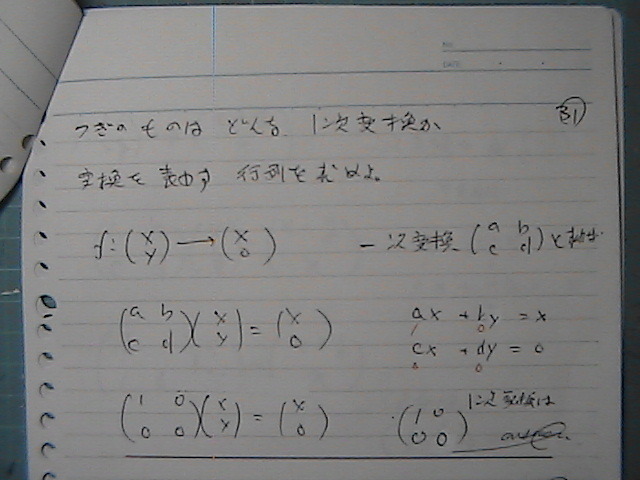 NO.
DATE
31
つぎのものは どんな 1次変換か
変換を表わす 行列を求めよ。
f:(x y)→(x 0) 一次変換(a b c d)と表わす
(a b c d)(x y)=(x 0) ax + by = x
cx + dy = 0
1 0
0 0
(1 0 0 0)(x y)=(x 0) (1 0 0 0) 1次変換は
answer